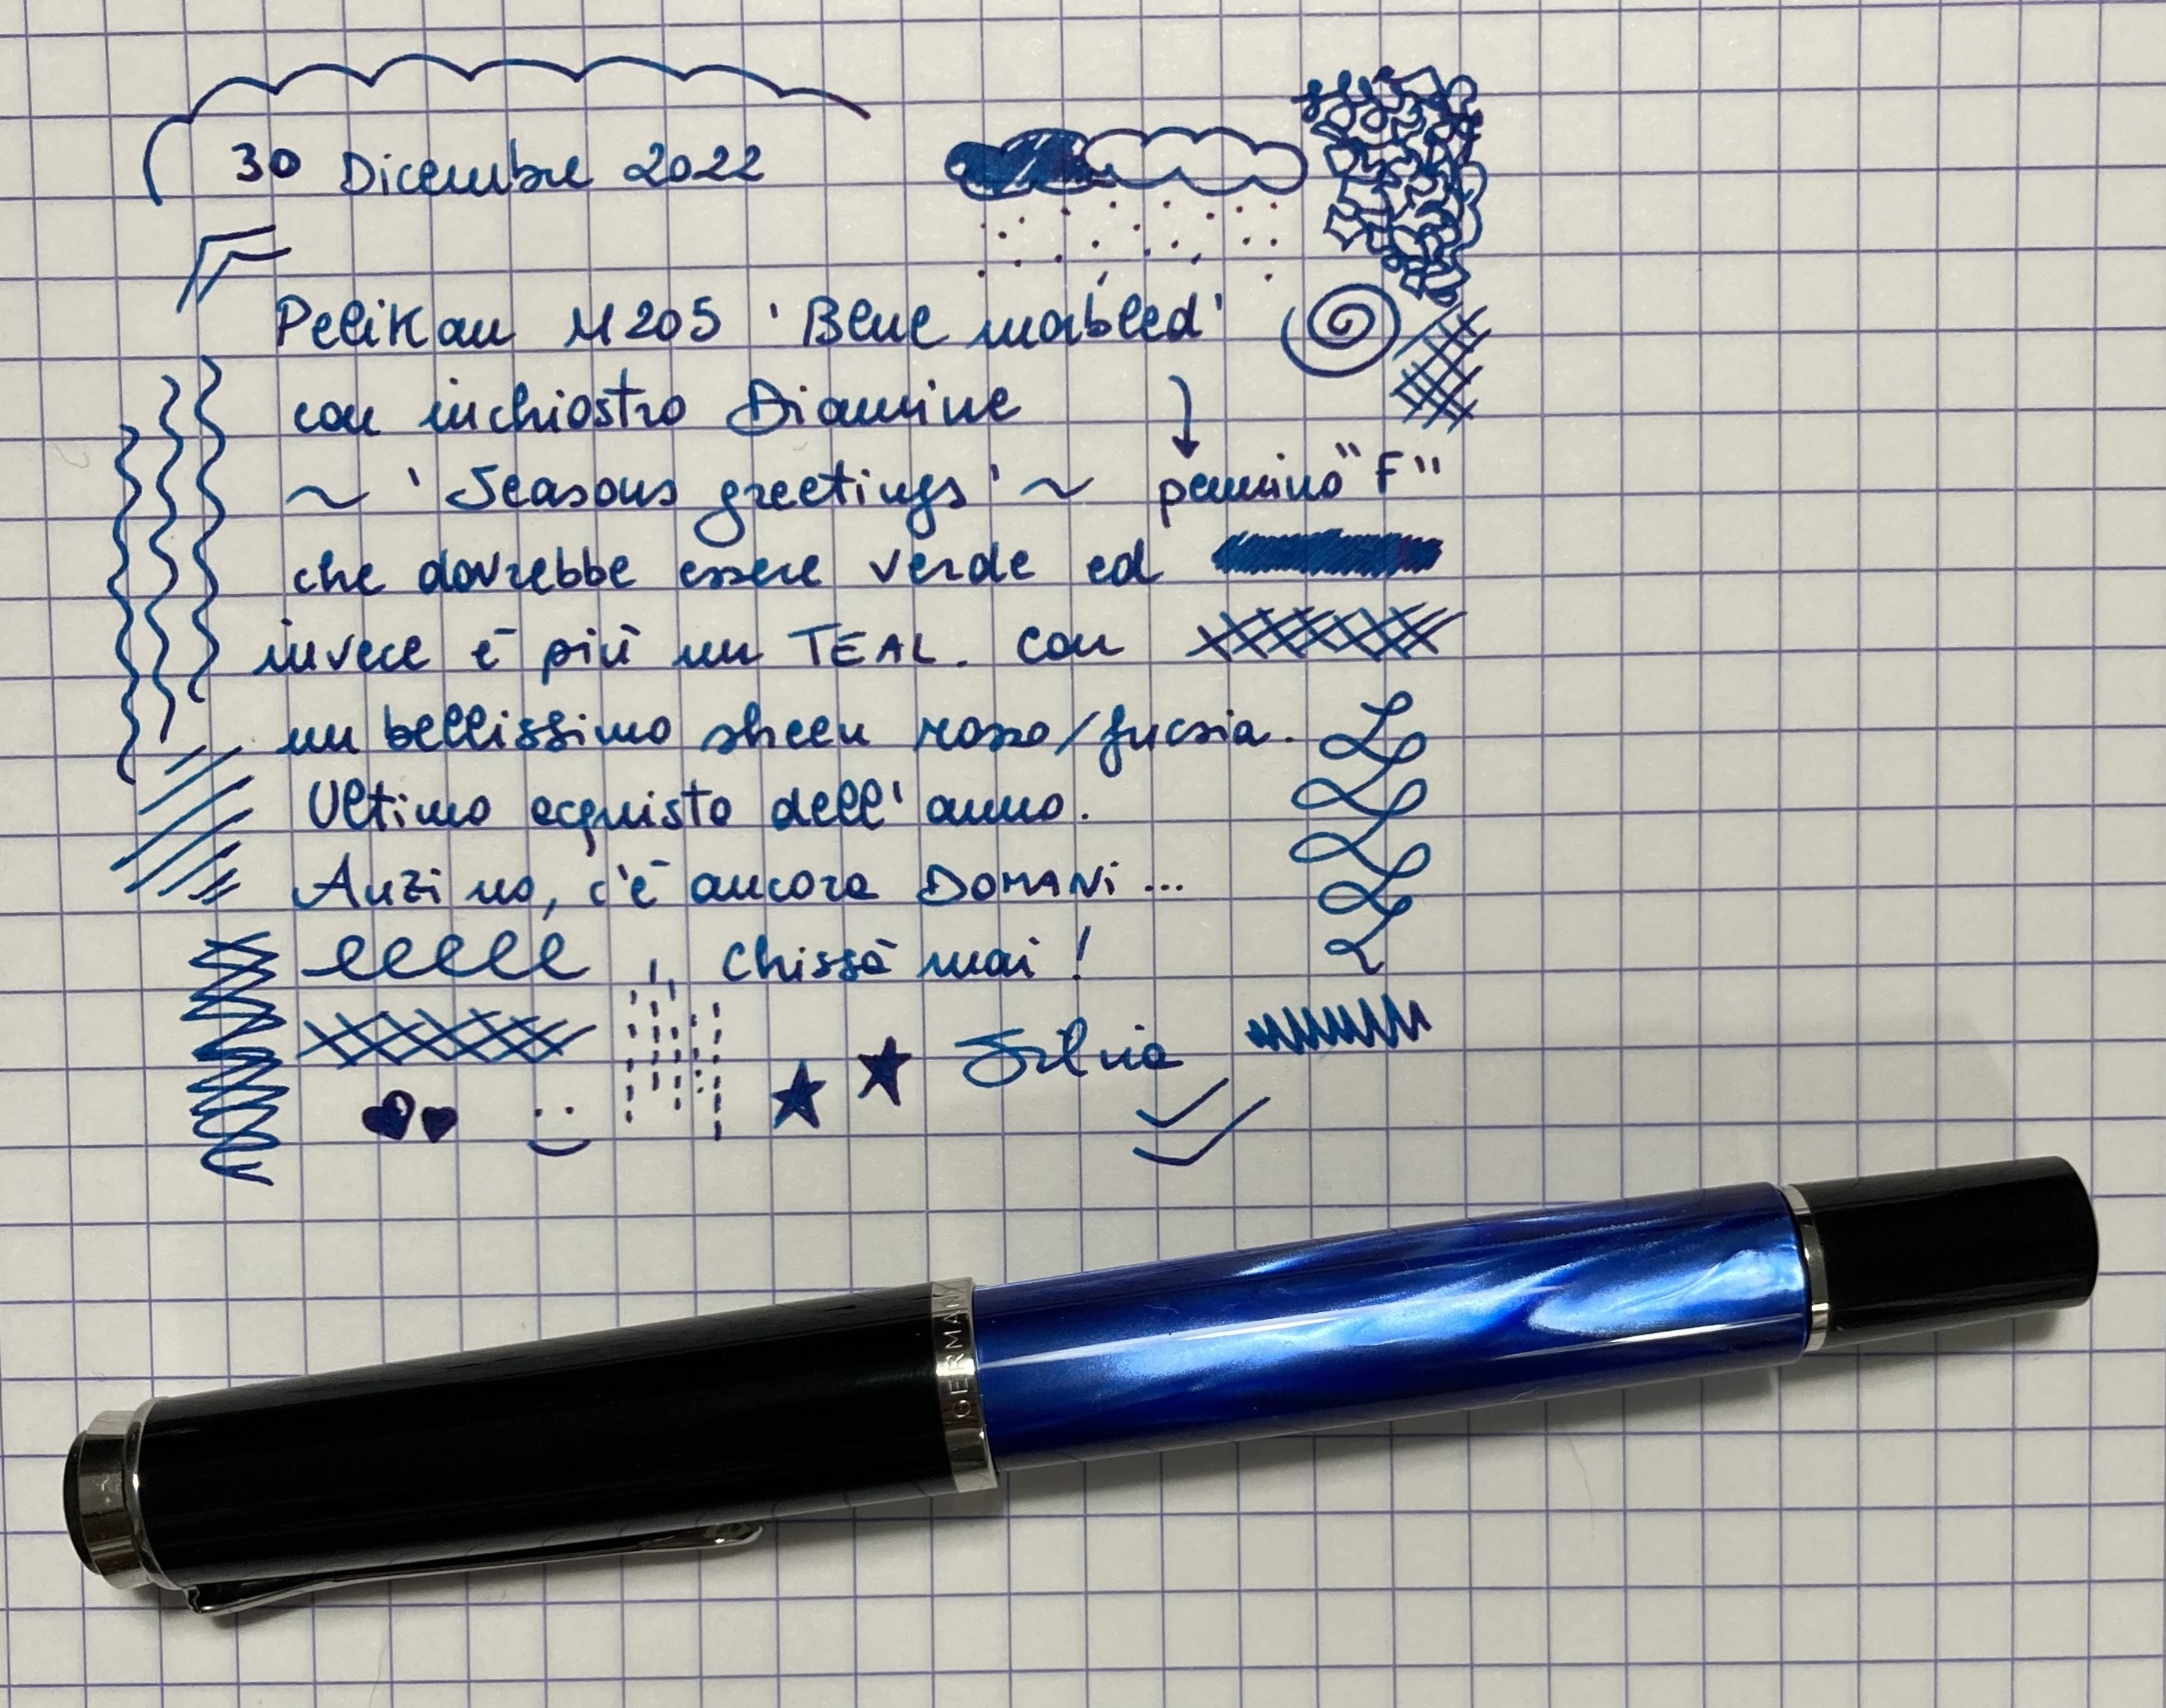 30 Dicembre 2022
Pelikan M205 'Blue marbled'
con inchiostro Diamine
~ 'Seasons greetings' ~ pennino "F"
che dovrebbe essere verde ed
invece è più un TEAL. Con
un bellissimo sheen rosso/fucsia.
Ultimo acquisto dell'anno.
Anzi no, c'è ancora DOMANi...
Chissà mai!
Silvia
GERMANY